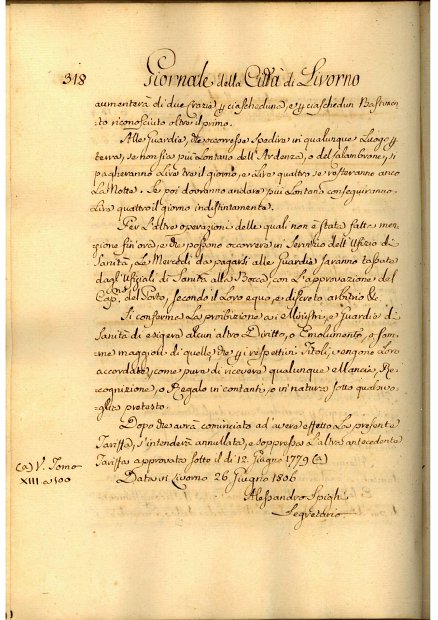 318
Giornale della Città di Livorno
aumenterà di due scozie p ciascheduna, e p ciaschedun Bastimen
to riconosciuto oltre il primo.
Alle Guardie, che occorresse spedire in qualunque Luogo p
terra, se non sia più lontano dell'Ardenza, o del Calambrone, si
pagheranno Lire tre il giorno, e Lire quattro se resteranno anco
La Notte. Se poi dovranno andare più lontano conseguiranno
Lire quattro il giorno indistintamente.
Per L'altre operazioni delle quali non è stata fatta men
zione fin'ora, e che possono occorrere in servizio dell'Ufizio di
Sanità, Le Mercedi da pagarsi alle Guardie saranno tassate
dagl'Ufiziali di Sanità alla Bocca, con L'approvazione del
Cap. del Porto, secondo il loro equo, e discreto arbitrio &c
Si conferma La proibizione ai Ministri, e Guardie di
Sanità di esigere alcun altro Diritto, o Emolumento, o som
me maggiori di quelle che p i respettivi Titoli, vengono loro
accordate, come pure di ricevere qualunque Mancia, Re
cognizione, o Regalo in contanti, o in natura sotto qualsivo
glia pretesto.
Dopo che avrà cominciato ad'avere effetto La presente
Tariffa, s'intenderà annullata, e soppressa L'altra antecedente
Tariffa approvata sotto il dì 12. Giugno 1779 (a)
Data in Livorno 26 Giugno 1806
Alessandro Spighi
Segretario
(a) V. Tomo
XIII a 500